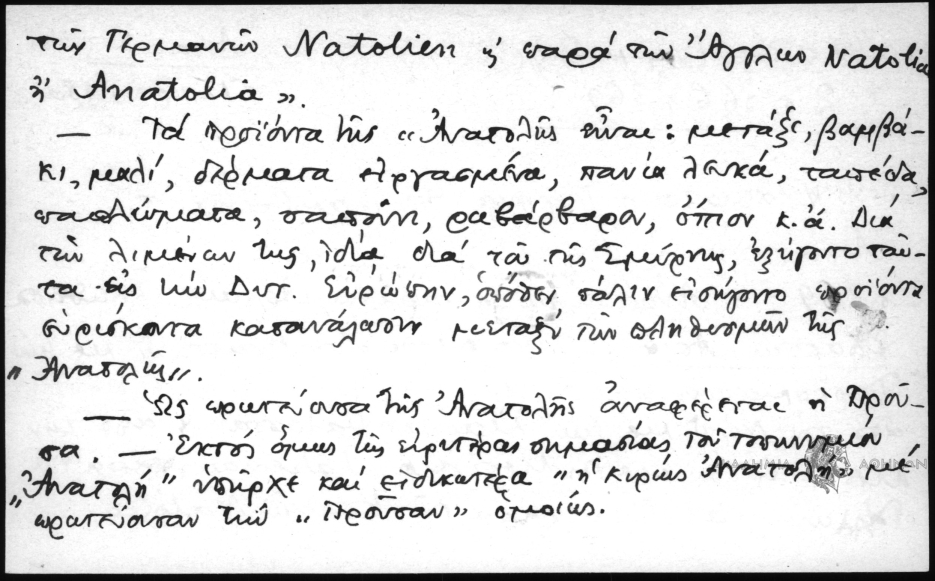 τῶν Γερμανῶν Natolien ἢ παρὰ τῶν Ἄγγλων Natolia
ἢ Anatolia».
— Τὰ προϊόντα τῆς «Ἀνατολῆς εἶναι: μετάξι, βαμβά-
κι, μαλί, δέρματα εἰργασμένα, πανία λευκά, ταπέδα,
παπλώματα, σαπούνι, ραβάρβαρον, ὄπιον κ.ἄ. Διὰ
τῶν λιμένων της, ἰδίᾳ διὰ τοῦ τῆς Σμύρνης, ἐξήγοντο ταῦ-
τα εἰς τὴν Δυτ. Εὐρώπην, ὁπόθεν πάλιν εἰσήγοντο προϊόντα
εὑρίσκοντα κατανάλωσιν μεταξὺ τῶν πληθυσμῶν τῆς
"Ἀνατολῆς".
— Ὡς πρωτεύουσα τῆς Ἀνατολῆς ἀναφέρεται ἡ Προῦ-
σα. — Ἐκτὸς ὅμως τῆς εὐρυτέρας σημασίας τοῦ τοπωνυμίου
"Ἀνατολή" ὑπῆρχε καὶ εἰδικώτερα "ἡ κυρίως Ἀνατολή" μὲ
πρωτεύουσαν τὴν "Προῦσαν" ὁμοίως.